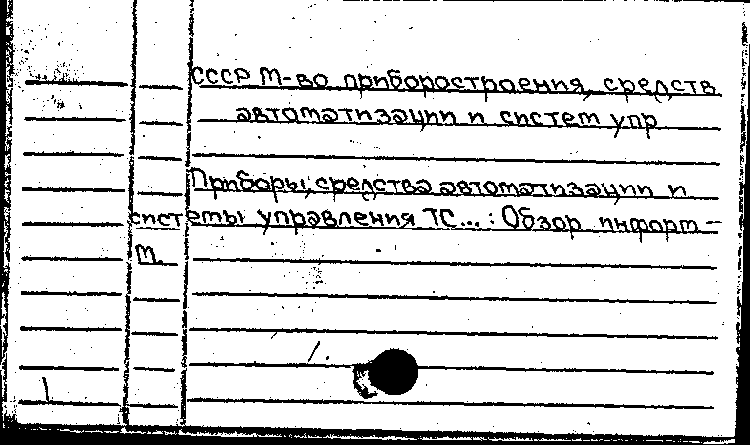 СССР М-во приборостроения, средств
автоматизации и систем упр
Приборы, средства автоматизации и
системы управления ТС... : Обзор информ –
М.